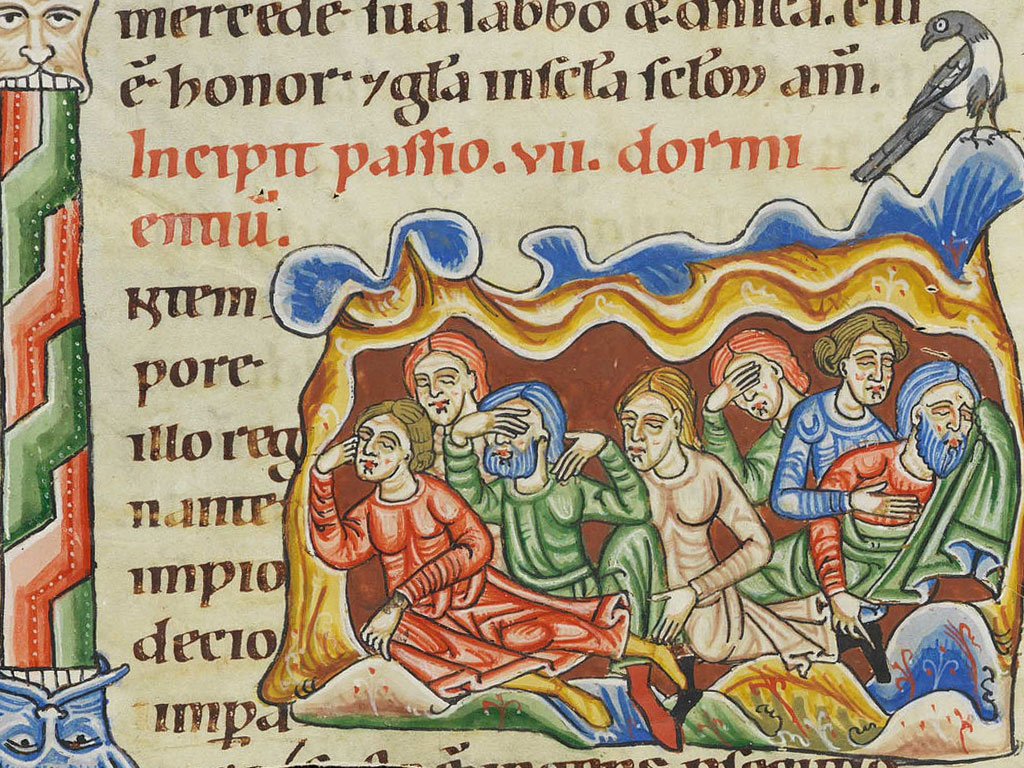 mercede sua sabbo & dnica. cui
ē honor ⁊ gła inscła scłoꝝ am̄.
Incipit passio. vii. dormi
entiū.
N tem
pore
illo reg
nante
impio
decio
impa